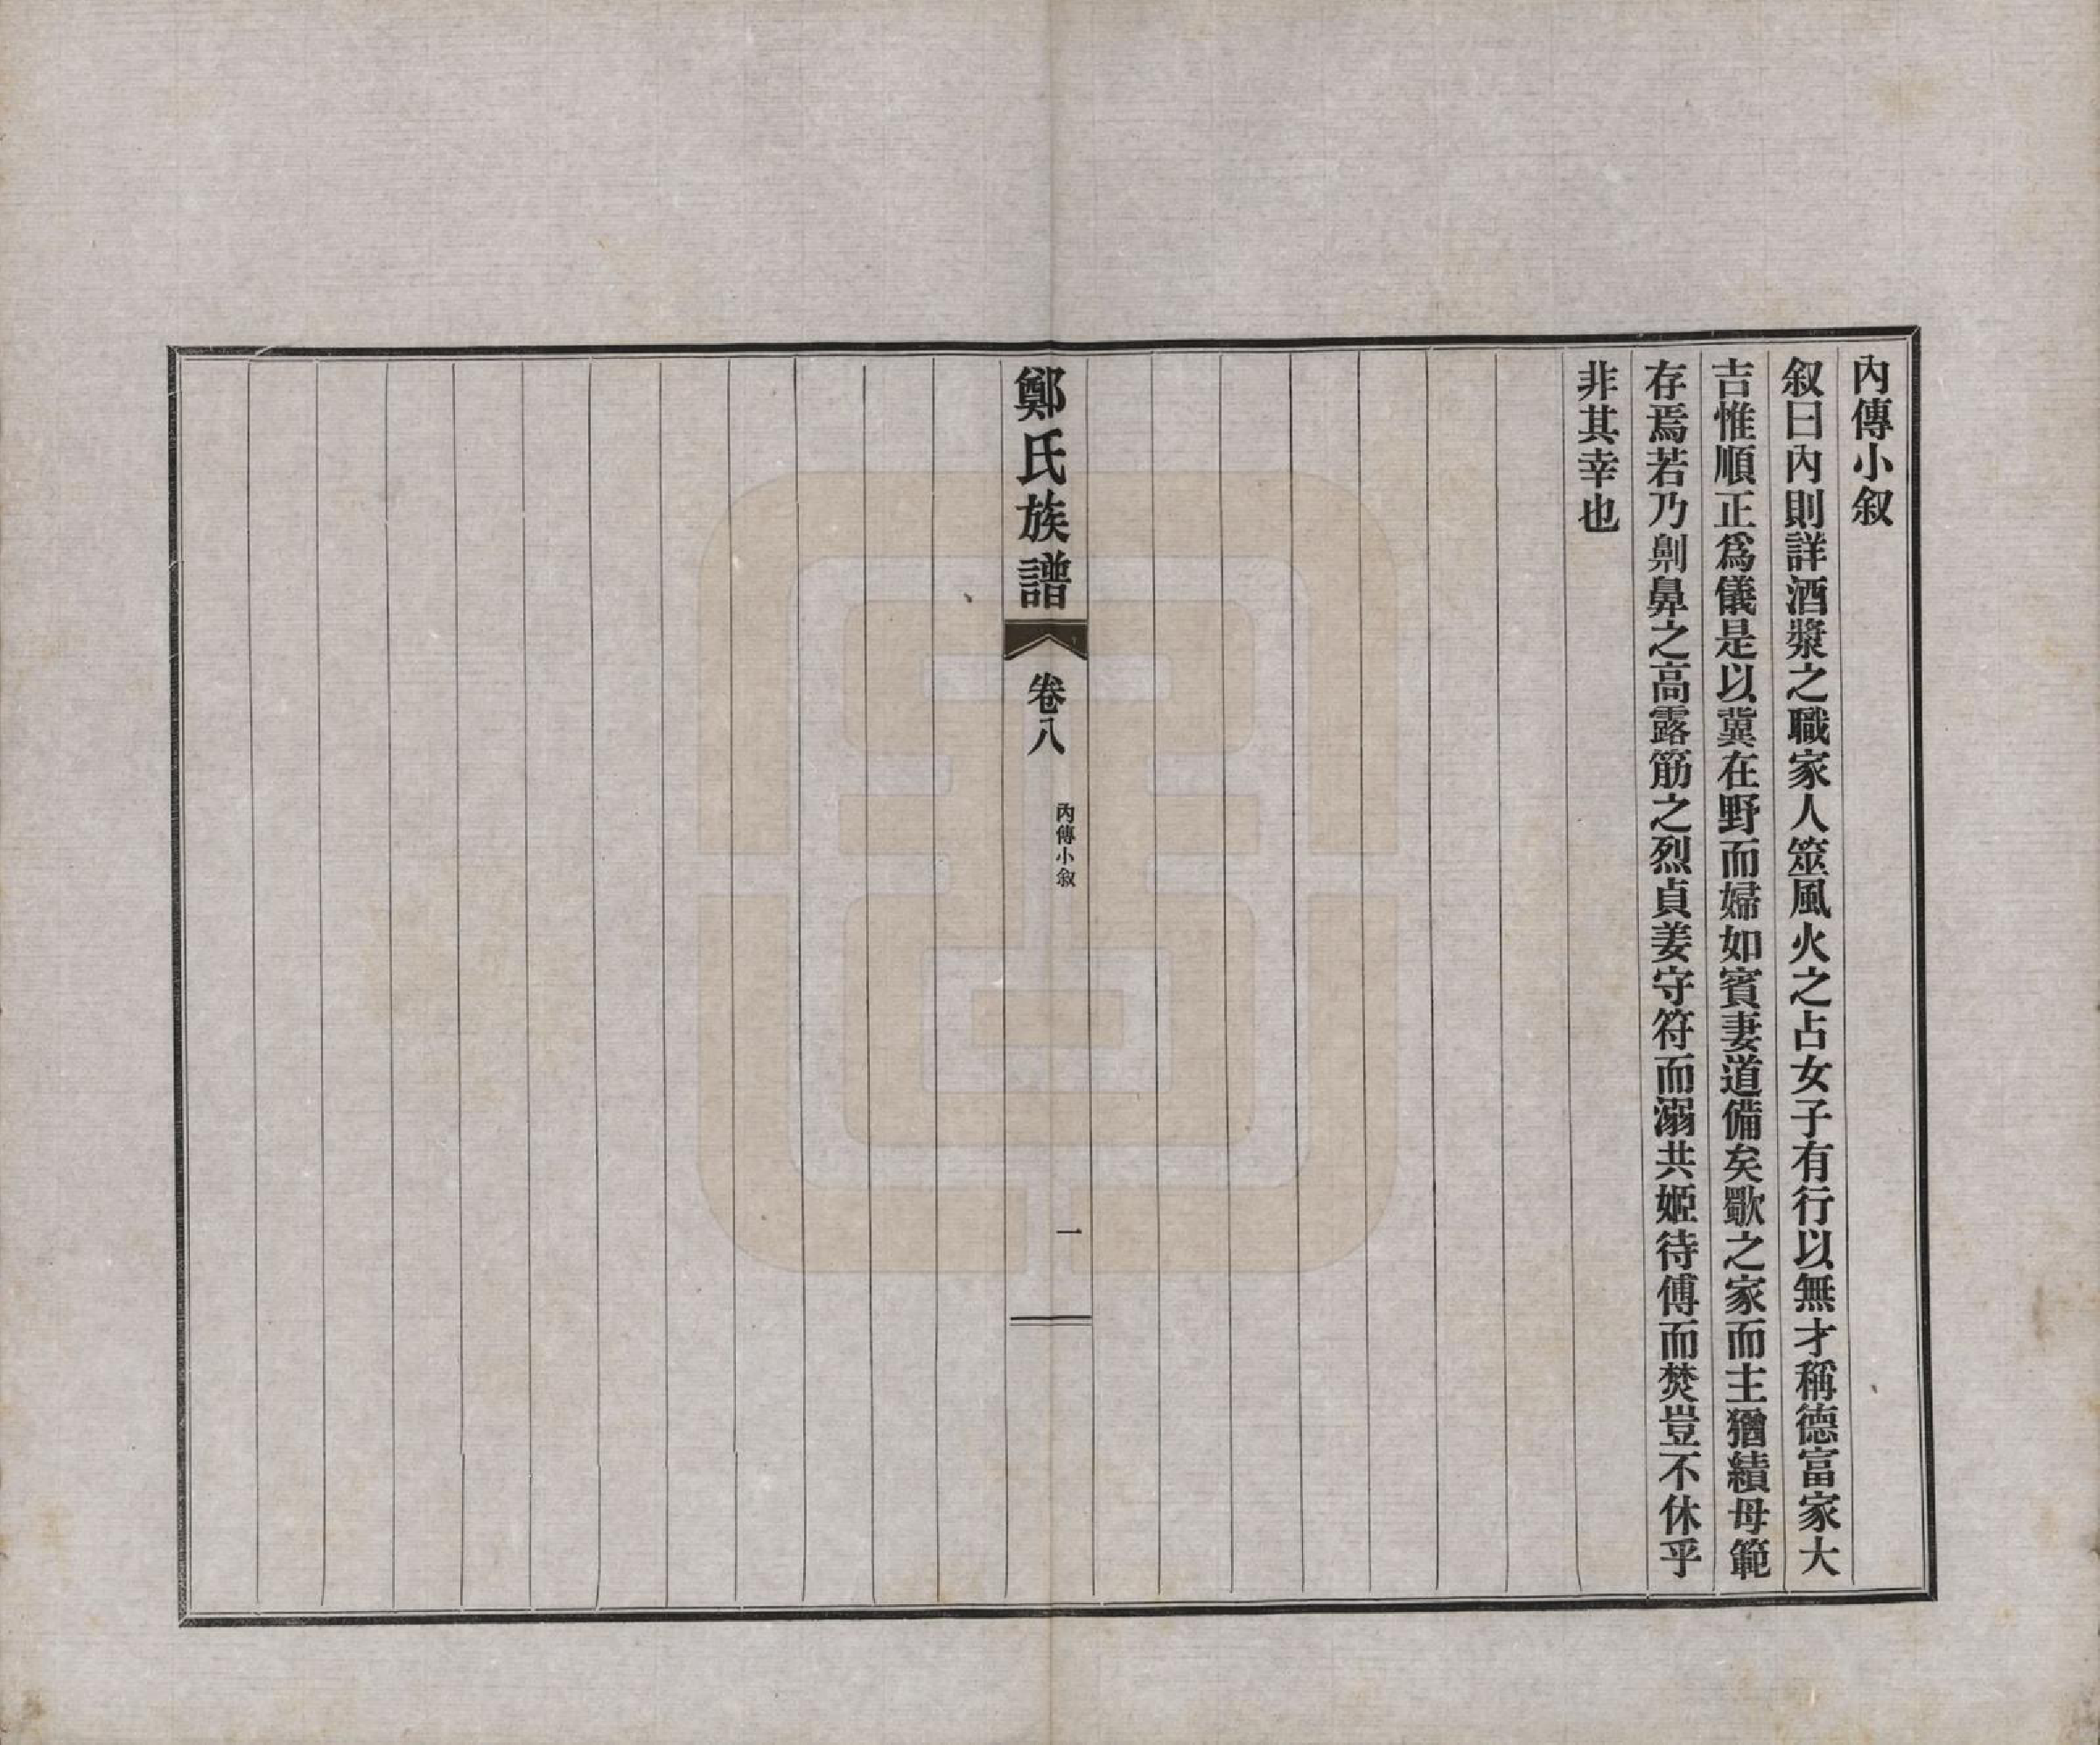 內傳小叙
叙曰內則詳酒漿之職家人筮風火之占女子有行以無才稱德富家大
吉惟順正爲儀是以冀在野而婦如賓妻道備矣歜之家而主猶績母範
存焉若乃劓鼻之高露筋之烈貞姜守符而溺共姬待傅而焚豈不休乎
非其幸也
鄭氏族譜
卷八
內傳小叙
一